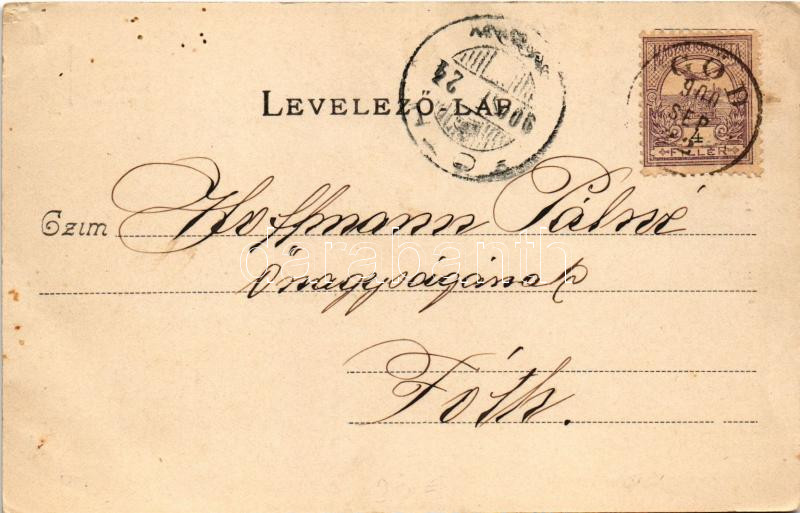 GÖD
900
SEP
4
FILLÉR
LEVELEZŐ LAP
900
24
Czim Hoffmann Pálné
Őnagyságának
Fóth.
darabanth